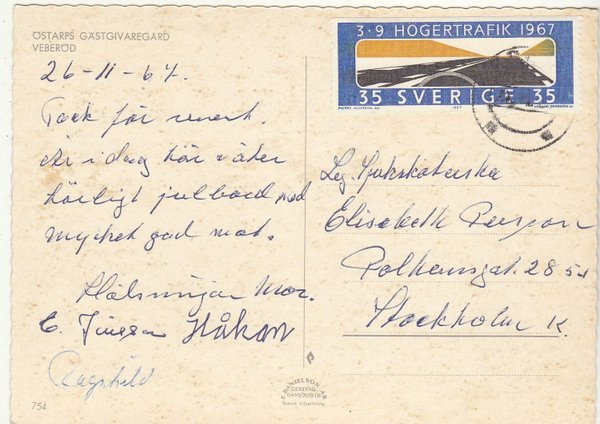 ÖSTARPS GÄSTGIVAREGÅRD
VEBERÖD
26-11-67.
Tack för senast.
Är i dag här o äter
härligt julbord med
mycket god mat.
Hälsningar Mor.
E. Håkan
Ragnhild
754
3·9 HÖGERTRAFIK 1967
35 SVERIGE 35
1967
Leg. Sjuksköterska
Elisabeth Persson
Polhemsgat. 28
Stockholm K.
E. DANIELSON AB
GENEVAD